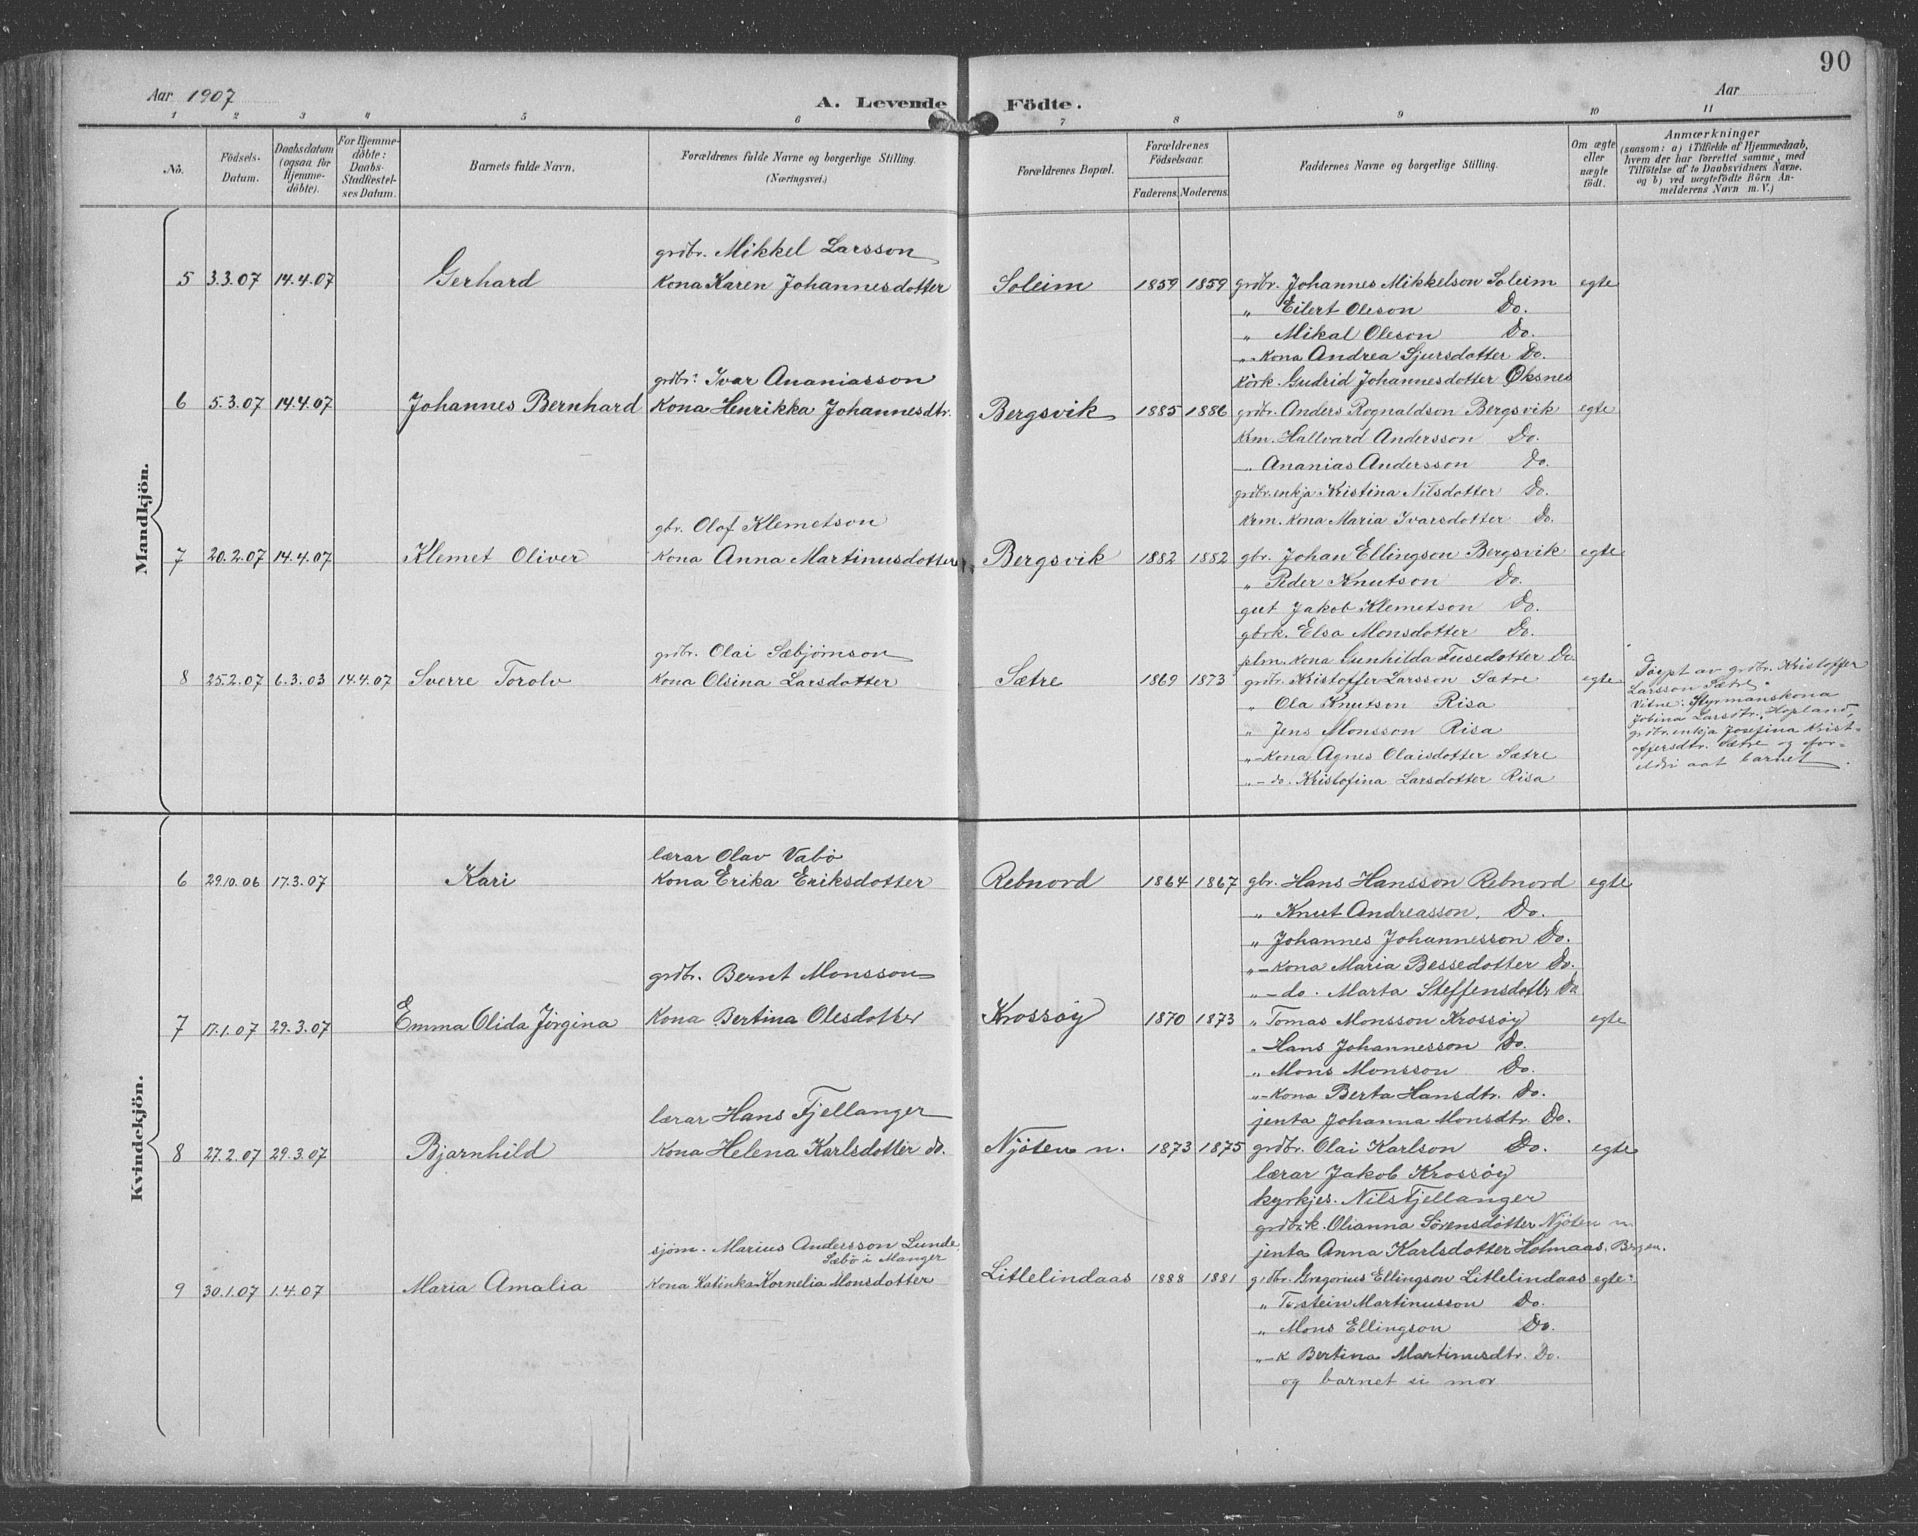 90
Aar 1907
A. Levende Födte.
Aar
1 2 3 4 5 6 7 8 9 10 11
No.
Födsels-Datum.
Daabsdatum (ogsaa for Hjemme-döbte).
For Hjemme-döbte: Daabs-Stadfæstelses Datum.
Barnets fulde Navn.
Forældrenes fulde Navne og borgerlige Stilling.
(Næringsvei.)
Forældrenes Bopæl.
Forældrenes Födselsaar.
Faderens. Moderens.
Faddernes Navne og borgerlige Stilling.
Om ægte eller uægte födt.
Anmærkninger
(saasom: a) i Tilfælde af Hjemmedaab, hvem der har forrettet samme, med Tilföielse af to Daabsvidners Navne. og b) ved uægtefödte Börn Anmelderens Navn m. V.)
Mandkjön.
grdbr. Mikkel Larsson
5 3.3.07 14.4.07 Gerhard Kona Karen Johannesdotter Soleim 1859 1859 grdbr. Johannes Mikkelson Soleim egte
„ Eilert Oleson Do.
„ Mikal Oleson Do.
„-Kona Andrea Sjursdotter Do.
Körk. Gudrid Johannesdotter Øksnes
grdbr. Ivar Ananiasson
6 5.3.07 14.4.07 Johannes Bernhard Kona Henrikka Johannesdtr. Bergsvik 1885 1886 grdbr. Anders Rognaldson Bergsvik egte
Krm. Hallvard Andersson Do.
„ Ananias Andersson Do.
grdbr.enkja Kristina Nilsdotter Do.
Krm. Kona Maria Ivarsdotter Do.
gbr. Olof Klemetson
7 20.2.07 14.4.07 Klemet Oliver Kona Anna Martinusdotter Bergsvik 1882 1882 gbr. Johan Ellingson Bergsvik egte
„ Peder Knutson Do.
gut Jakob Klemetson Do.
gbrk. Elsa Monsdotter Do.
plm. Kona Gunhilda Fusedotter Do.
grdbr. Olai Sæbjørnson
8 25.2.07 6.3.03 14.4.07 Sverre Torolv Kona Olsina Larsdotter Sætre 1869 1873 grdbr. Kristoffer Larsson Sætre egte
„ Ola Knutson Risa
„ Jens Monsson Risa
„-Kona Agnes Olaisdotter Sætre
„-do. Kristofina Larsdotter Risa
Döypt av grdbr. Kristoffer
Larsson Sætre.
Vitne: Styrmanskona
Jobina Larsdtr. Hopland,
grdbr.enkja Josefina Krist-
offersdtr. Sætre og for-
eldri aat barnet.
Kvindekjön.
lærar Olav Vabö
6 29.10.06 17.3.07 Kari Kona Erika Eriksdotter Rebnord 1864 1867 gbr. Hans Hansson Rebnord egte
„ Knut Andreasson. Do.
„ Johannes Johannesson Do.
„-Kona Maria Bessedotter Do.
„-do. Marta Steffensdottr Do
grdbr. Bernt Monsson
7 17.1.07 29.3.07 Emma Olida Jørgina Kona Bertina Olesdotter Krossøy 1870 1873 „ Tomas Monsson Krossøy egte
„ Hans Johannesson Do.
„ Mons Monsson Do.
„-Kona Berta Hansdtr. Do.
jenta Johanna Monsdtr. Do.
lærar Hans Fjellanger
8 27.2.07 29.3.07 Bjarnhild Kona Helena Karlsdotter do. Njöten n. 1873 1875 grdbr. Olai Karlson Do. egte
lærar Jakob Krossøy
kyrkjes. Nils Fjellanger
grdbr.k. Olianna Sörensdotter Njöten n.
jenta Anna Karlsdotter Holmaas, Bergen.
sjöm. Marius Andersson Lunde,
Sæbö i Manger
9 30.1.07 1.4.07 Maria Amalia Kona Katinka Kornelia Monsdotter Litlelindaas 1888 1881 grdbr. Gregorius Ellingson Litlelindaas egte
„ Torstein Martinusson Do.
„ Mons Ellingson Do.
„-k Bertina Martinusdtr. Do.
og barnet si mor